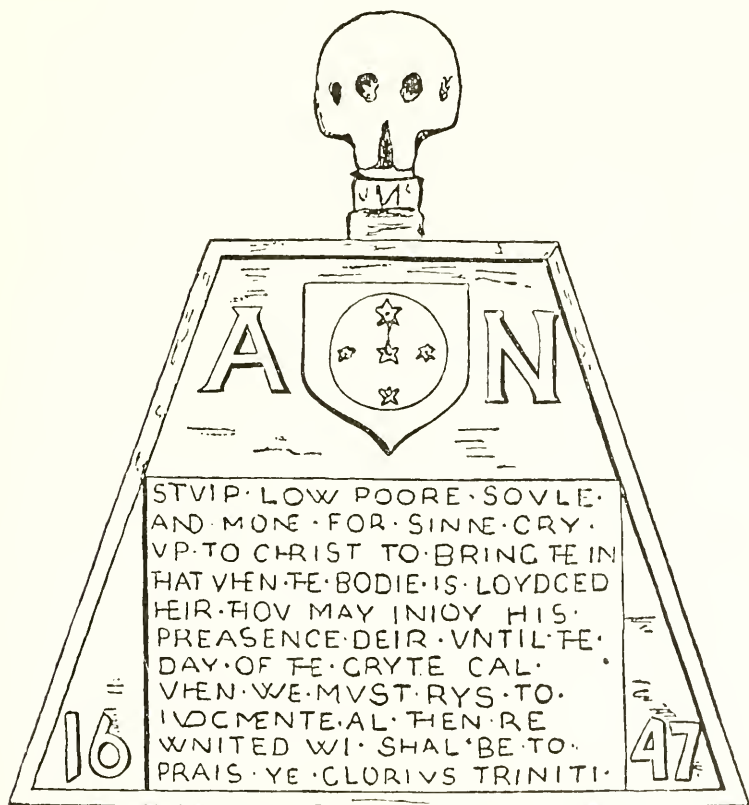 A N
STVIP·LOW POORE·SOVLE·
AND·MONE·FOR·SINNE·CRY·
VP·TO CHRIST TO·BRING THE IN
THAT VHEN·THE·BODIE·IS·LOYDCED
HEIR·THOV MAY INIOY HIS·
PREASENCE·DEIR·VNTIL·THE·
DAY·OF THE·GRYTE CAL·
VHEN·WE·MVST·RYS·TO·
IVDGMENTE·AL·THEN·RE
WNITED WI·SHAL·BE·TO·
PRAIS·YE·GLORIVS TRINITI·
16 47